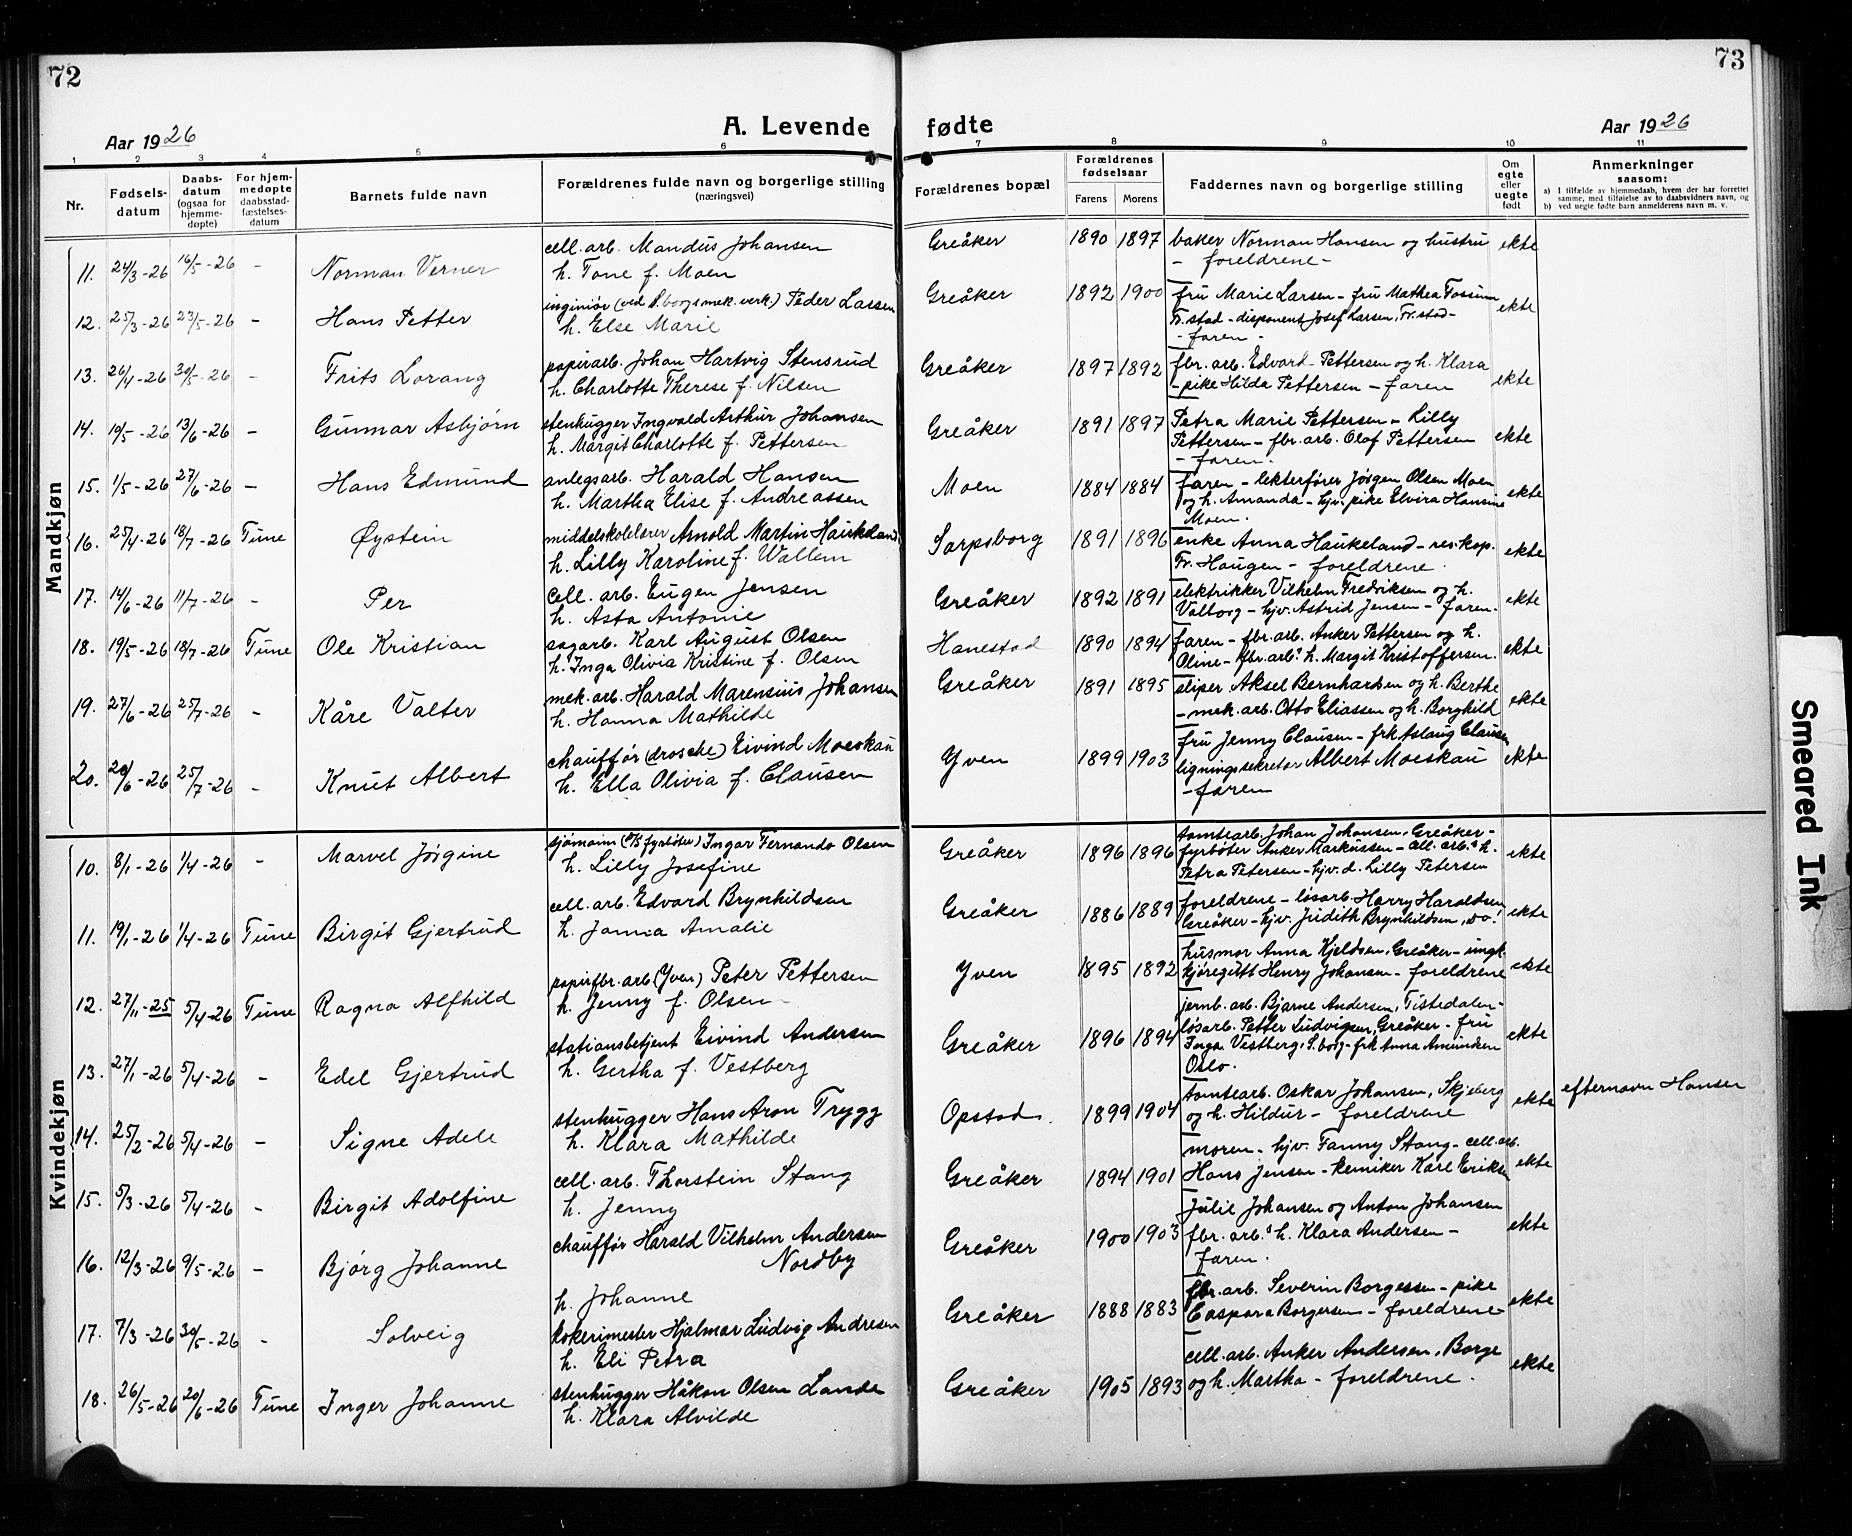 72
73
Aar 1926
A. Levende fødte
Aar 1926
1 2 3 4 5 6 7 8 9 10 11
Nr.
Fødsels-
datum
Daabs-
datum
(ogsaa for
hjemme-
døpte)
For hjem-
medøpte
daabsstad-
fæstelses-
datum
Barnets fulde navn
Forældrenes fulde navn og borgerlige stilling
(næringsvei)
Forældrenes bopæl
Forældrenes
fødselsaar
Farens Morens
Faddernes navn og borgerlige stilling
Om
egte
eller
uegte
født
Anmerkninger
saasom:
a) I tilfælde av hjemmedaab, hvem der har forrettet
samme, med tilføielse av to daabsvidners navn, og
b) ved uegte fødte barn anmelderens navn m. v.
Mandkjøn
11. 24/3-26 16/5-26 - Norman Verner
cell. arb. Mandus Johansen
h. Tone f. Moen
Greåker 1890 1897
baker Norman Hansen og hustru
- foreldrene -
ekte
12. 25/3-26 23/5-26 - Hans Petter
inginiør (ved S.borgs mek. verk.) Peder Lassen
h. Else Marie
Greåker 1892 1900
fru Marie Larsen - fru Mathea Fossum
Fr.stad - disponent Josef Larsen, Fr.stad -
- faren -
ekte
13. 26/4-26 30/5-26 - Frits Lorang
papirarb. Johan Hartvig Stensrud
h. Charlotte Therese f. Nilsen
Greåker 1897 1892
fbr. arb. Edvard Pettersen og h. Klara
- pike Hilda Pettersen - faren
ekte
14. 10/5-26 13/6-26 - Gunnar Asbjørn
stenhugger Ingvald Arthur Johansen
h. Margit Charlotte f. Pettersen
Greåker 1891 1897
Petra Marie Pettersen - Lilly
Pettersen - fbr. arb. Olaf Pettersen
- faren.
ekte
15. 1/5-26 27/6-26 - Hans Edmund
anlegsarb. Harald Hansen
h. Martha Elise f. Andreassen
Moen 1884 1884
faren - lekterfører Jørgen Olsen Moen
og h. Amanda - hjv. pike Elvira Hansine
Moen.
ekte
16. 25/4-26 18/7-26 Tune Øystein
middelskolelærer Arnold Martin Haukeland
h. Lilly Karoline f. Wallem
Sarpsborg 1891 1896
enke Anna Haukeland - res. kap.
Fr. Haugen - foreldrene.
ekte
17. 14/6-26 11/7-26 - Per
cell. arb. Eugen Jensen
h. Asta Antonie
Greåker 1892 1891
elektrikker Vilhelm Fredriksen og h.
Valborg - hjv. Astrid Jensen - faren.
ekte
18. 19/5-26 18/7-26 Tune Ole Kristian
sagarb. Karl August Olsen
h. Inga Olivia Kristine f. Olsen
Hanestad 1890 1894
faren - fbr. arb. Anker Pettersen og h.
Oline - fbr. arb.s h. Margit Kristoffersen.
ekte
19. 27/6-26 25/7-26 - Kåre Valter
mek. arb. Harald Marensius Johansen
h. Hanna Mathilde
Greåker 1891 1895
sliper Aksel Bernhardsen og h. Berthe
- mek. arb. Otto Eliassen og h. Borghild
ekte
20. 20/6-26 25/7-26 - Knut Albert
chauffør (drosche) Eivind Moeskau
h. Ella Olivia f. Clausen
Yven 1899 1903
fru Jenny Clausen - frk Aslaug Clausen
ligningssekretær Albert Moeskau
- faren
ekte
Kvindekjøn
10. 8/1-26 1/4-26 - Marvel Jørgine
sjømann (fyrbøter) Ingar Fernando Olsen
h. Lilly Josefine
Greåker 1896 1896
tomtearb. Johan Johansen, Greåker -
fyrbøter Anker Markussen - cell. arb.s h.
Petra Petersen - hjv. d. Lilly Petersen
ekte
11. 19/1-26 1/4-26 Tune Birgit Gjertrud
cell. arb. Edvard Brynhildsen
h. Janna Amalie
Greåker 1886 1889
foreldrene - løsarb. Harry Haraldsen,
Greåker - hjv. Judith Brynhildsen, do.
ekte
12. 27/11-25 5/4-26 Tune Ragna Alfhild
papirfbr. arb. (Yven) Peter Pettersen
h. Jenny f. Olsen
Yven 1895 1892
husmor Anna Kjeldsen, Greåker - ungk.
kjøregutt Henry Johansen - foreldrene
ekte
13. 27/1-26 5/4-26 - Edel Gjertrud
stationsbetjent Eivind Andersen
h. Gertha f. Vestberg
Greåker 1896 1894
jernb. arb. Bjarne Andersen, Tistedalen -
løsarb. Petter Ludvigsen, Greåker - fru
Inga Vestberg, S.borg - frk Anna Amundsen
Oslo.
ekte
14. 25/2-26 5/4-26 - Signe Adele
stenhugger Hans Aron Trygg
h. Klara Mathilde
Opstad 1899 1904
tomtearb. Oskar Johansen, Skjeberg
og h. Hildur - foreldrene
ekte
efternavn Hansen
15. 5/3-26 5/4-26 - Birgit Adolfine
cell. arb. Thorstein Stang
h. Jenny
Greåker 1894 1901
moren - hjv. Fanny Stang - cell. arb.
Hans Jensen - kemiker Karl Eriksen
ekte
16. 12/3-26 9/5-26 - Bjørg Johanne
chauffør Harald Vilhelm Andersen
Nordby
h. Johanne
Greåker 1900 1903
Julie Johansen og Anton Johansen
fbr. arb.s h. Klara Andersen -
faren.
ekte
17. 7/3-26 30/5-26 - Solveig
kokerimester Hjalmar Ludvig Andresen
h. Eli Petra
Greåker 1888 1883
fbr. arb. Severin Borgessen - pike
Caspara Borgersen - foreldrene
ekte
18. 26/5-26 20/6-26 Tune Inger Johanne
stenhugger Håkon Olsen Lande
h. Klara Alvilde
Greåker 1905 1893
cell. arb. Anker Andersen, Borge
og h. Martha - foreldrene.
ekte
Smeared Ink